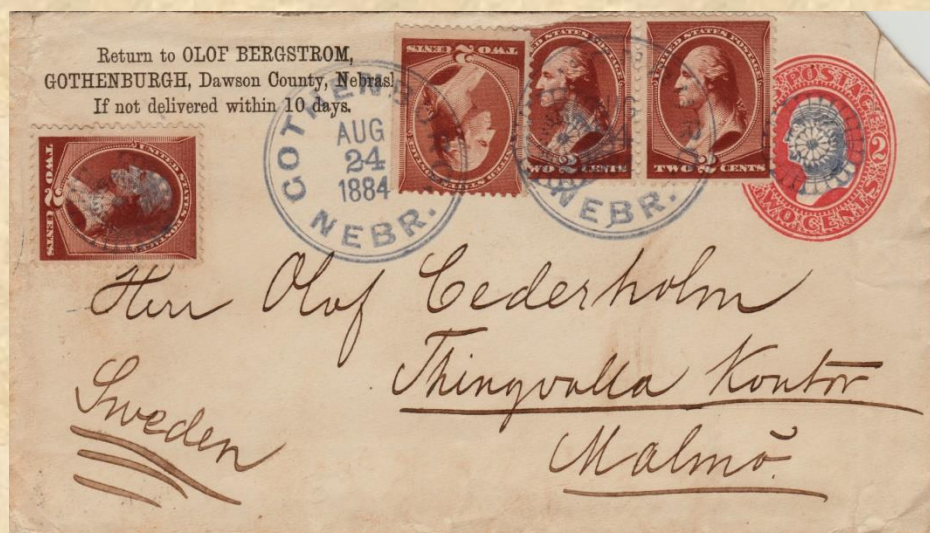 Return to OLOF BERGSTROM,
GOTHENBURGH, Dawson County, Nebras
If not delivered within 10 days.
AUG
24
1884
NEBR.
NEBR.
TWO CENTS
UNITED STATES POSTAGE
TWO CENTS
UNITED STATES POSTAGE
TWO 2 CENTS
UNITED STATES POSTAGE
TWO 2 CENTS
2
Herr Olof Cederholm
Thingvalla Kontor
Malmö.
Sweden